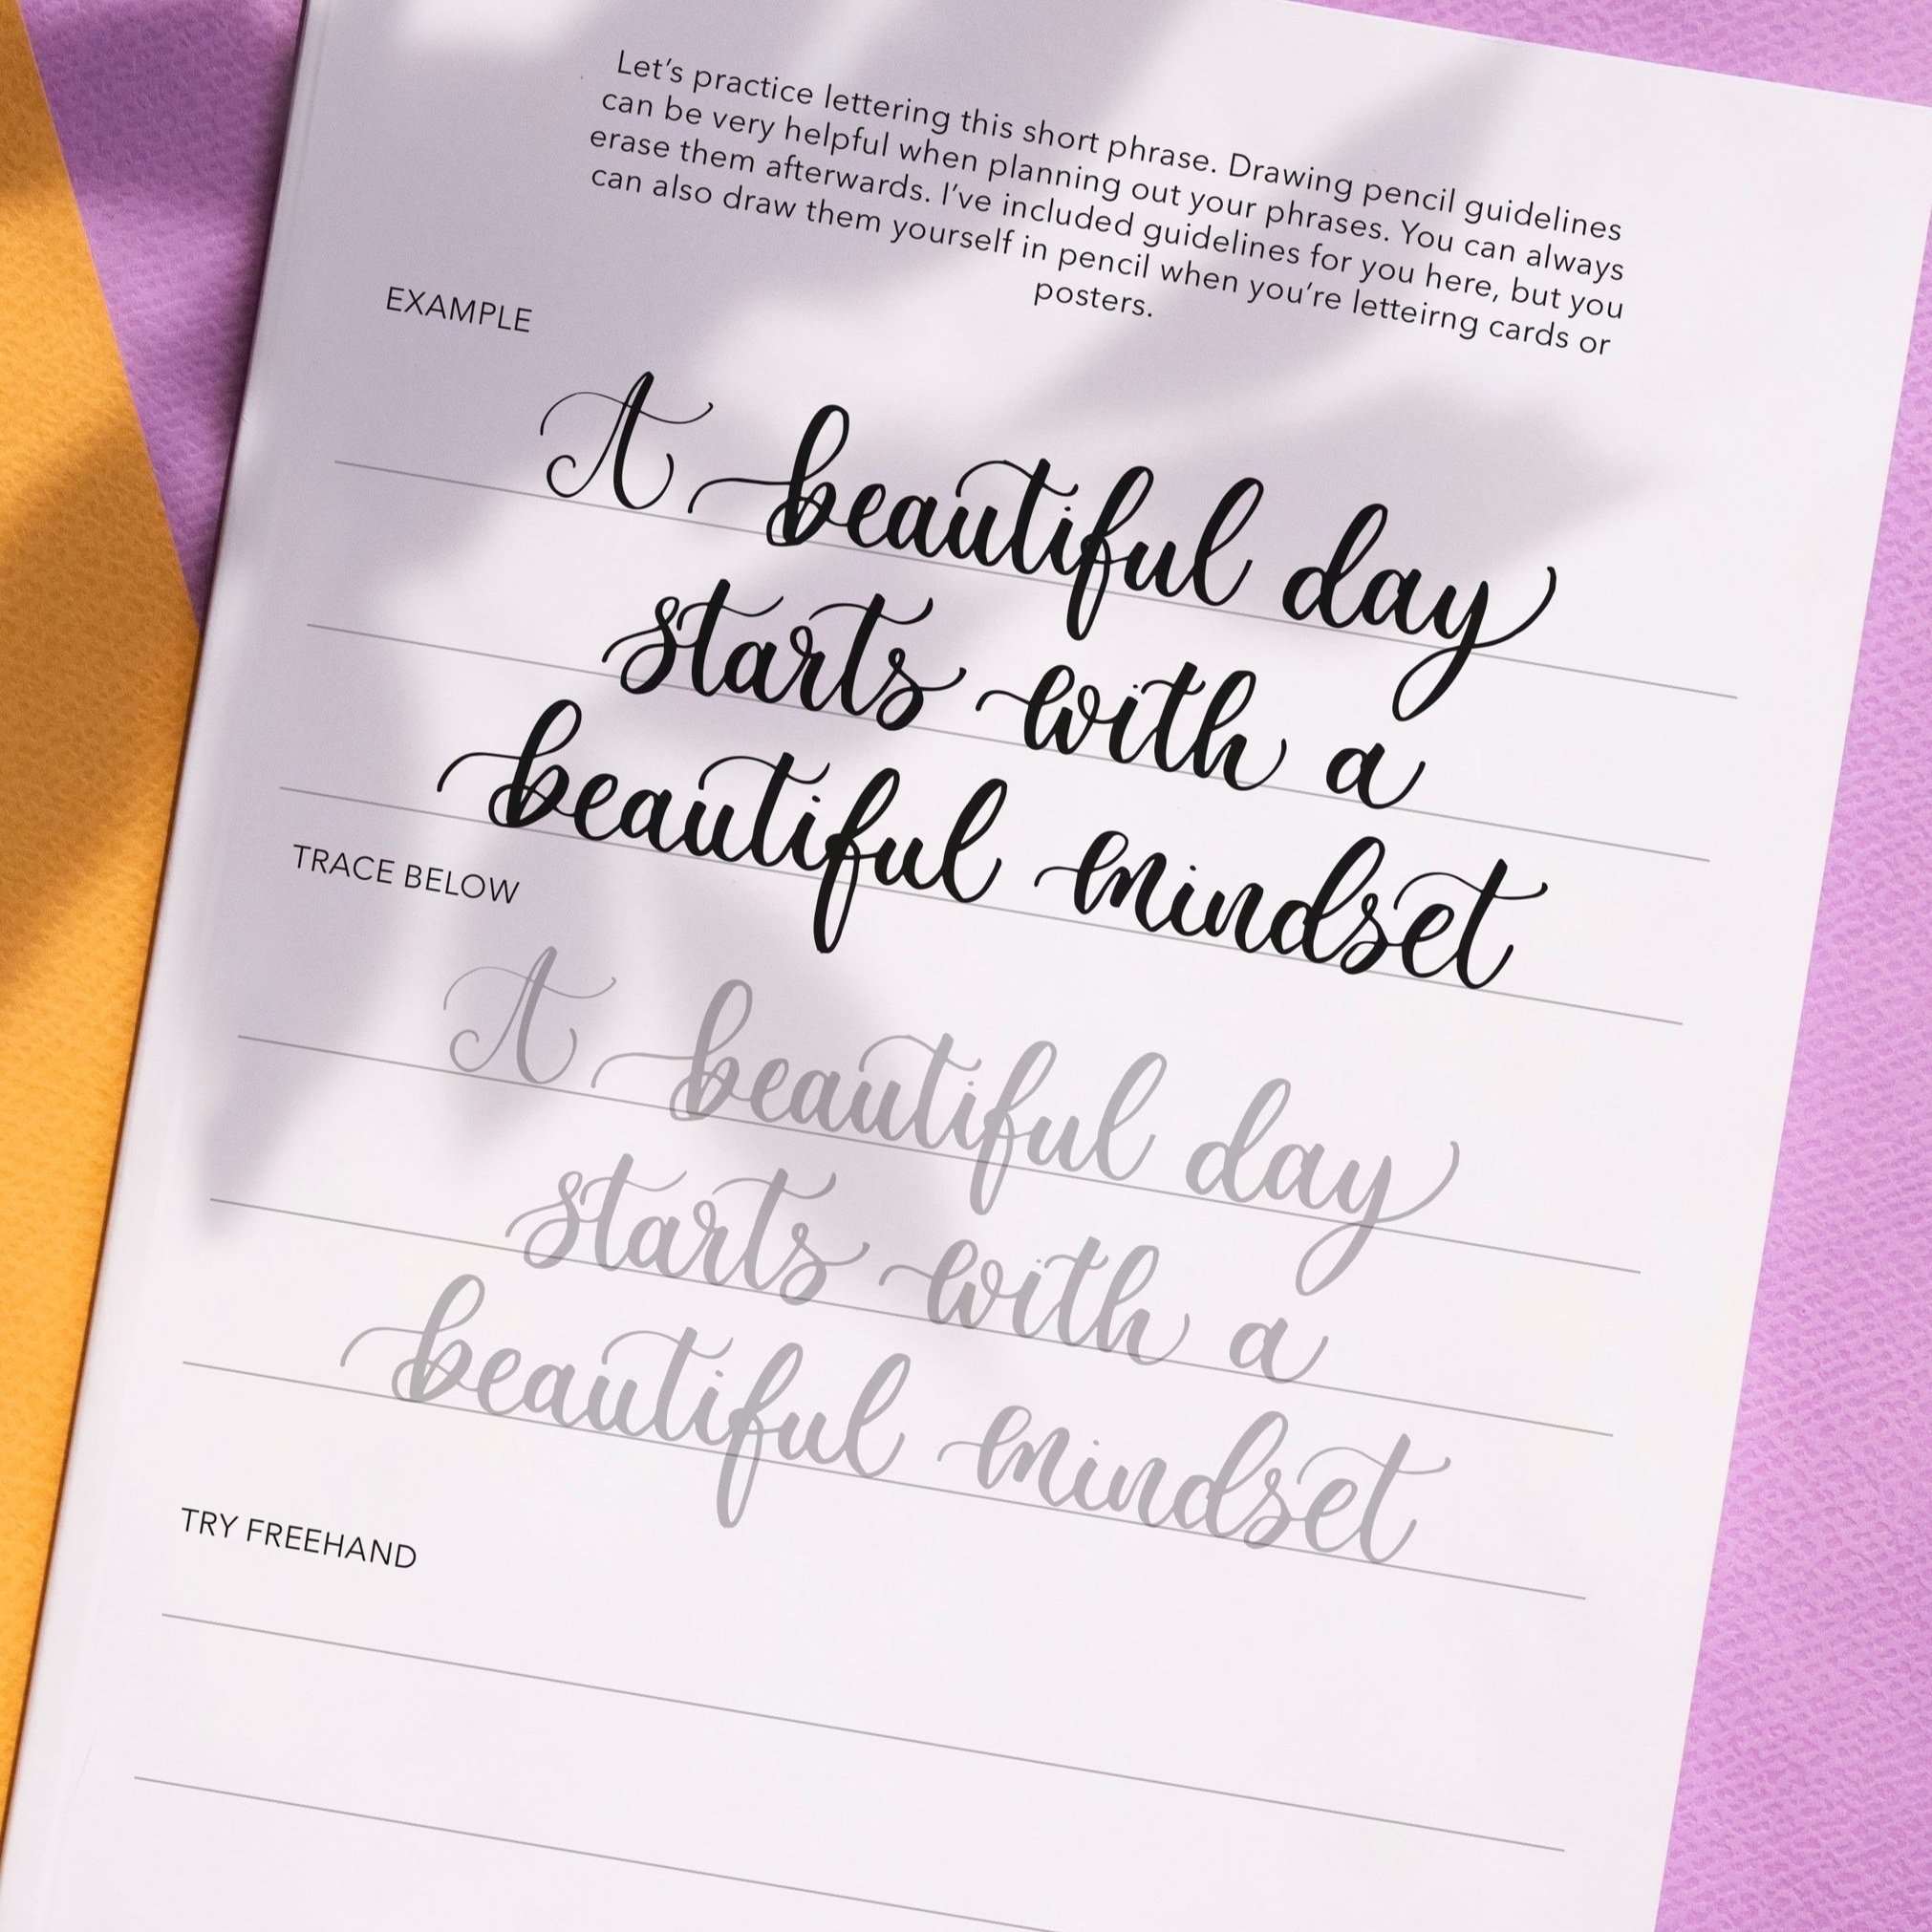 Let's practice lettering this short phrase. Drawing pencil guidelines
can be very helpful when planning out your phrases. You can always
erase them afterwards. I've included guidelines for you here, but you
can also draw them yourself in pencil when you're letteirng cards or
posters.
EXAMPLE
A beautiful day
starts with a
beautiful mindset
TRACE BELOW
A beautiful day
starts with a
beautiful mindset
TRY FREEHAND